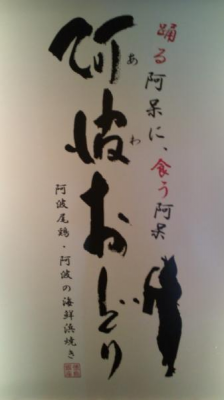 踊る阿呆に、食う阿呆
阿波おどり
あわ
阿波尾鶏・阿波の海鮮浜焼き